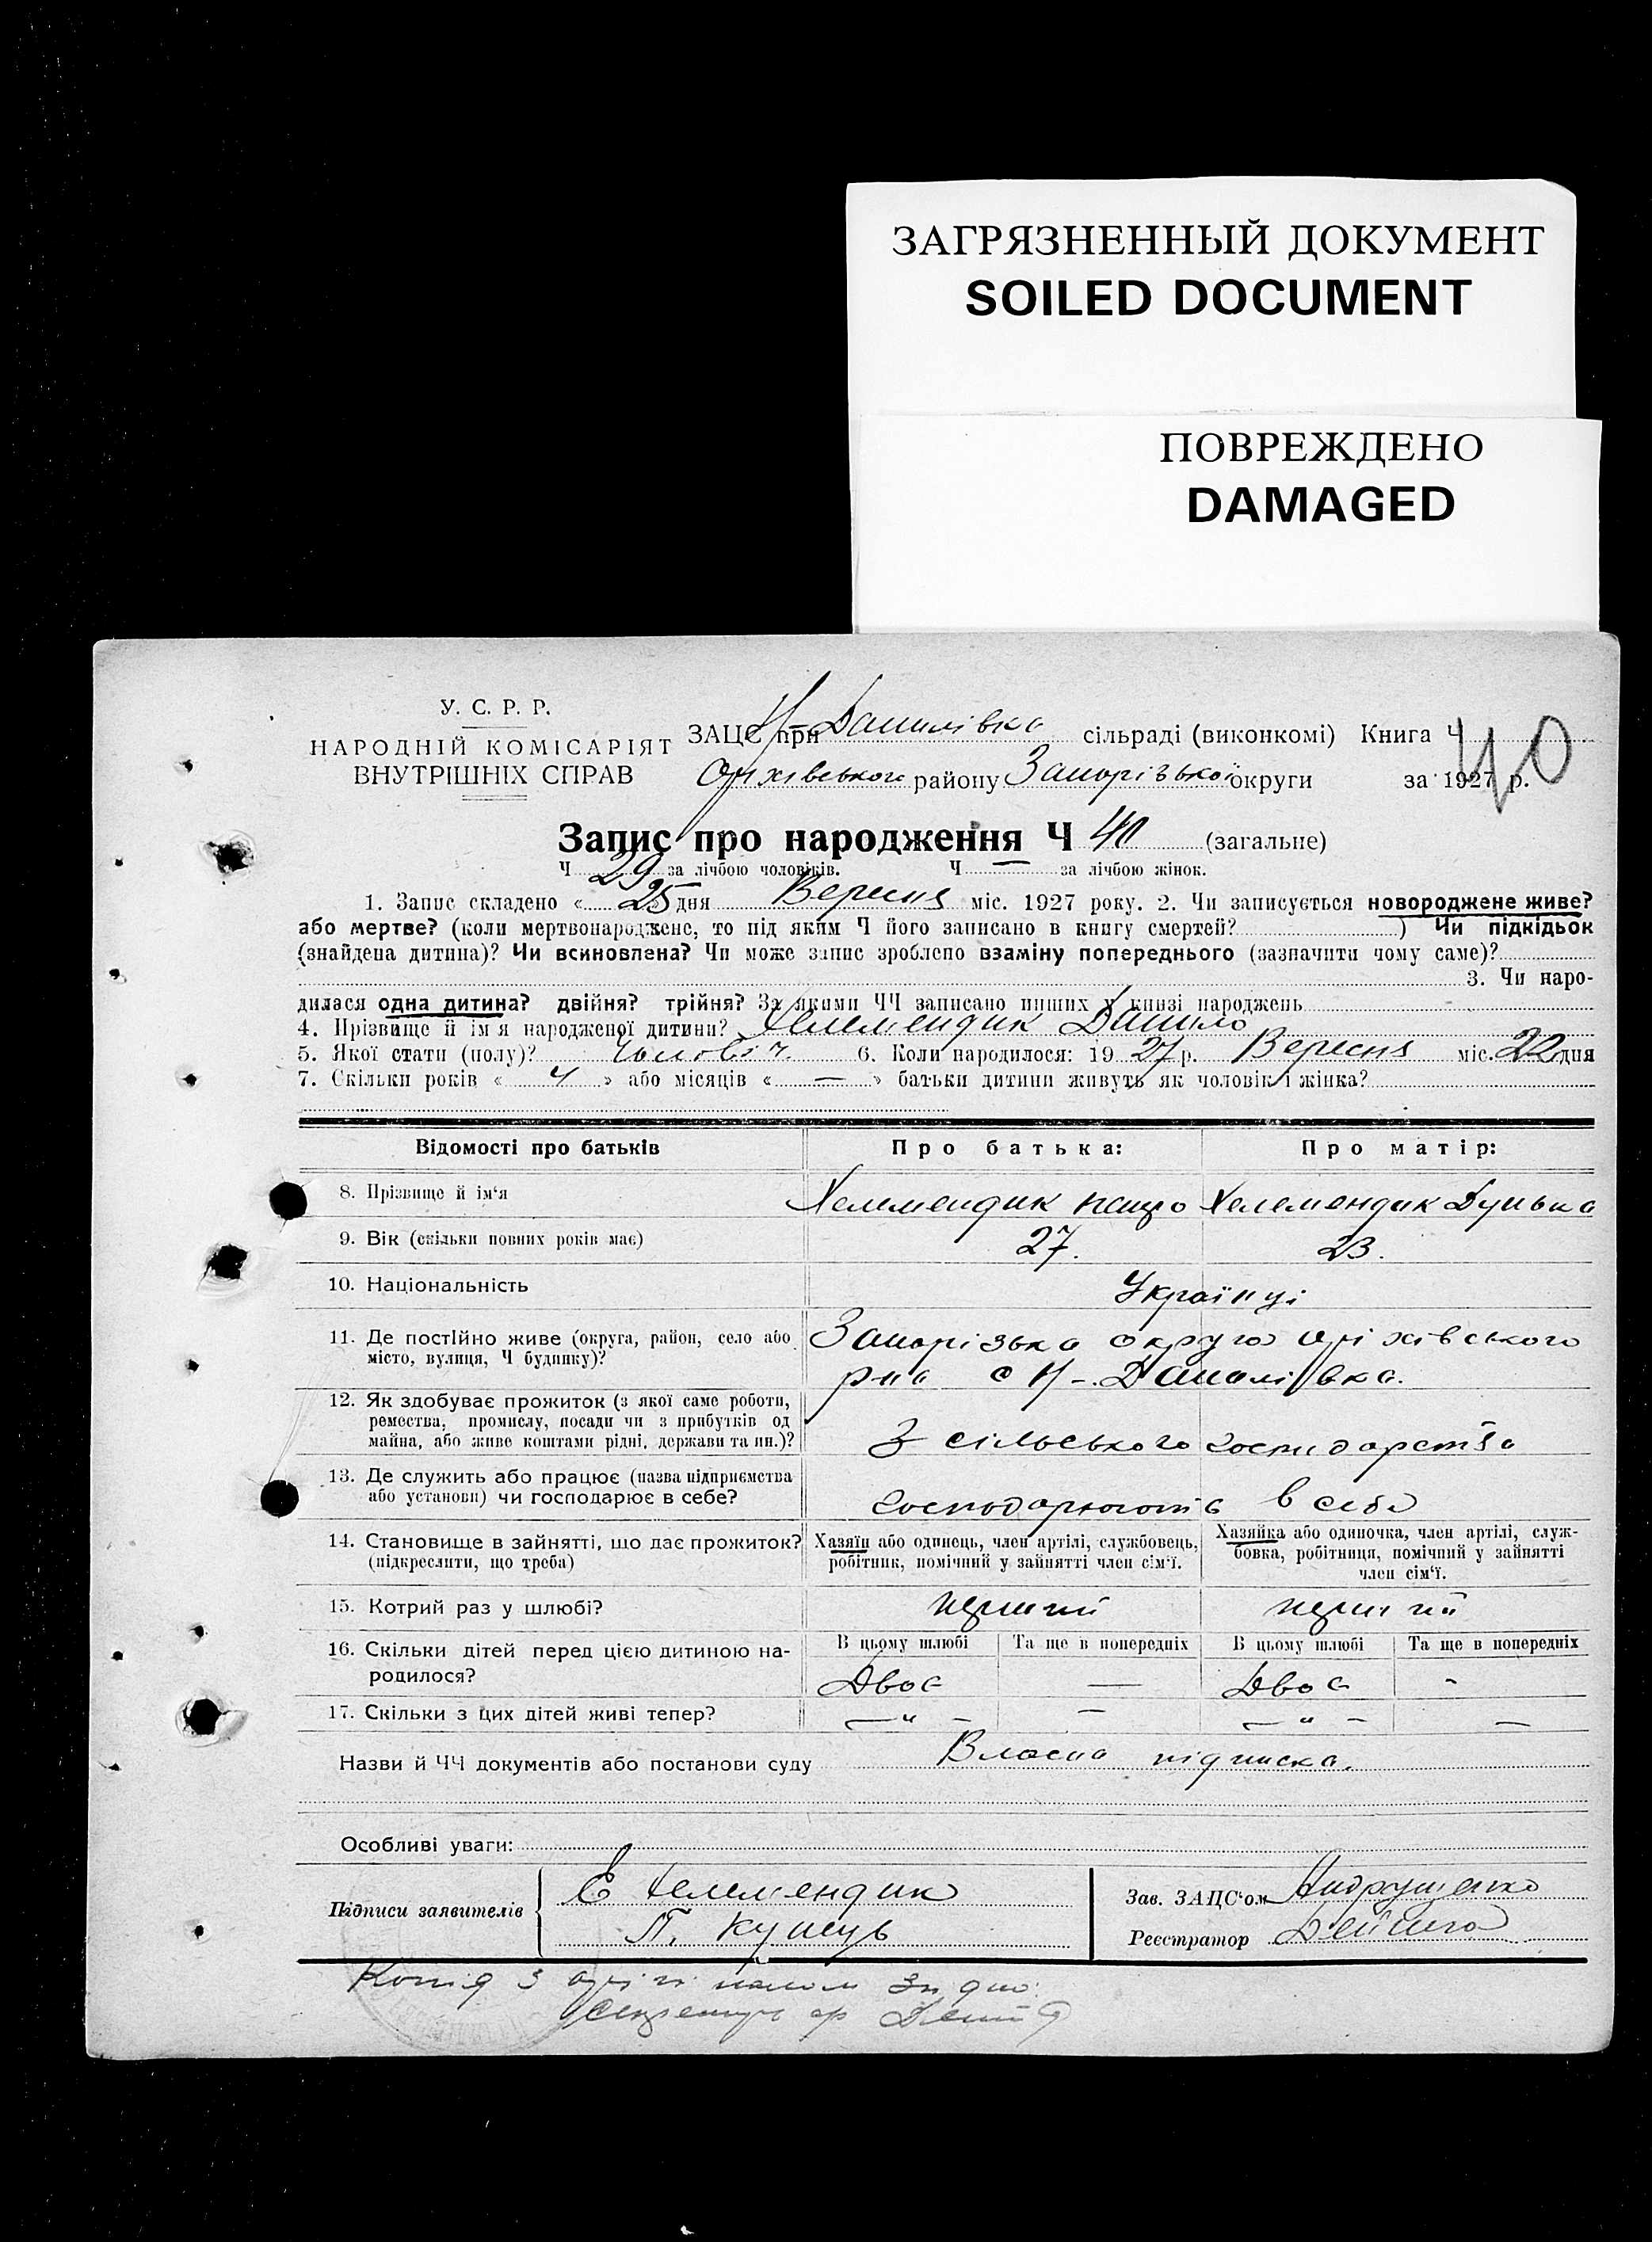 ЗАГРЯЗНЕННЫЙ ДОКУМЕНТ
SOILED DOCUMENT
ПОВРЕЖДЕНО
DAMAGED
У. С. Р. Р.
НАРОДНІЙ КОМІСАРІЯТ
ВНУТРІШНІХ СПРАВ
ЗАЦС при Н Данилівка сільраді (виконкомі) Книга Ч
Оріхівського району Запорізької округи за 1927 р.
40
Запис про народження Ч 40 (загальне)
Ч 29 за лічбою чоловіків. Ч — за лічбою жінок.
1. Запис складено « 25 дня Вересня міс. 1927 року. 2. Чи записується новороджене живе?
або мертве? (коли мертвонароджене, то під яким Ч його записано в книгу смертей? ) Чи підкідьок
(знайдена дитина)? Чи всиновлена? Чи може запис зроблено взаміну попереднього (зазначити чому саме)?
3. Чи наро-
дилася одна дитина? двійня? трійня? За якими ЧЧ записано инших у книзі народжень
4. Прізвище й ім'я народженої дитини? Хелемендик Данило
5. Якої стати (полу)? Чоловіч. 6. Коли народилося: 19 27 р. Вересня міс. 22 дня
7. Скільки років « 4 » або місяців « — » батьки дитини живуть як чоловік і жінка?
Відомості про батьків Про батька: Про матір:
8. Прізвище й ім'я Хелемендик Хелемендик Дунька
9. Вік (скільки повних років має) 27. 23.
10. Національність Українці
11. Де постійно живе (округа, район, село або Запорізька округа Оріхівського
місто, вулиця, Ч будинку)? р-на с Н-Данилівка.
12. Як здобуває прожиток (з якої саме роботи,
ремества, промислу, посади чи з прибутків од
майна, або живе коштами рідні, держави та ин.)? З сільського господарства
13. Де служить або працює (назва підприємства
або установи) чи господарює в себе? господарюють в себе
14. Становище в зайнятті, що дає прожиток? Хазяїн або одинець, член артілі, службовець, Хазяйка або одиночка, член артілі, служ-
(підкреслити, що треба) робітник, помічний у зайнятті член сім'ї. бовка, робітниця, помічний у зайнятті
член сім'ї.
15. Котрий раз у шлюбі? перший перший
16. Скільки дітей перед цією дитиною на- В цьому шлюбі Та ще в попередніх В цьому шлюбі Та ще в попередніх
родилося? Двоє — Двоє -
17. Скільки з цих дітей живі тепер? — " — — — " — —
Назви й ЧЧ документів або постанови суду Власна підписка.
Особливі уваги:
Підписи заявителів Є Хелемендик Зав. ЗАЦС'ом Андрущенко
П. Реєстратор